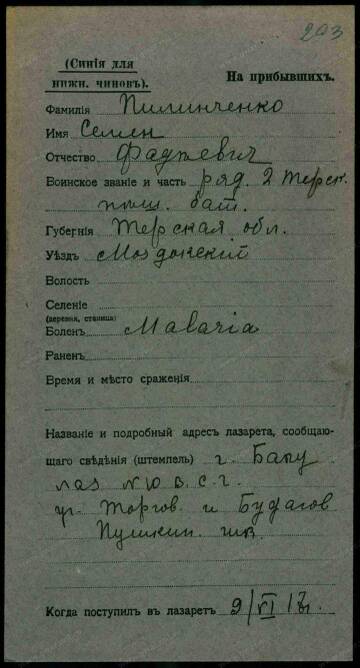 203
(Синія для
нижн. чиновъ).
На прибывшихъ.
Фамилія Пилипченко
Имя Семен
Отчество Фадѣевич
Воинское званіе и часть ряд. 2 Терск.
пласт. бат.
Губернія Терская обл.
Уѣздъ Моздокский
Волость
Селеніе
(деревня, станица)
Боленъ Маларія
Раненъ
Время и мѣсто сраженія
Названіе и подробный адресъ лазарета, сообщаю-
щаго свѣдѣнія (штемпель) г. Баку
лаз № 10 В. С. Г.
уг. Торгов. и Будагов
Пушкин. шк.
Когда поступилъ въ лазаретъ 9/VI 17г.